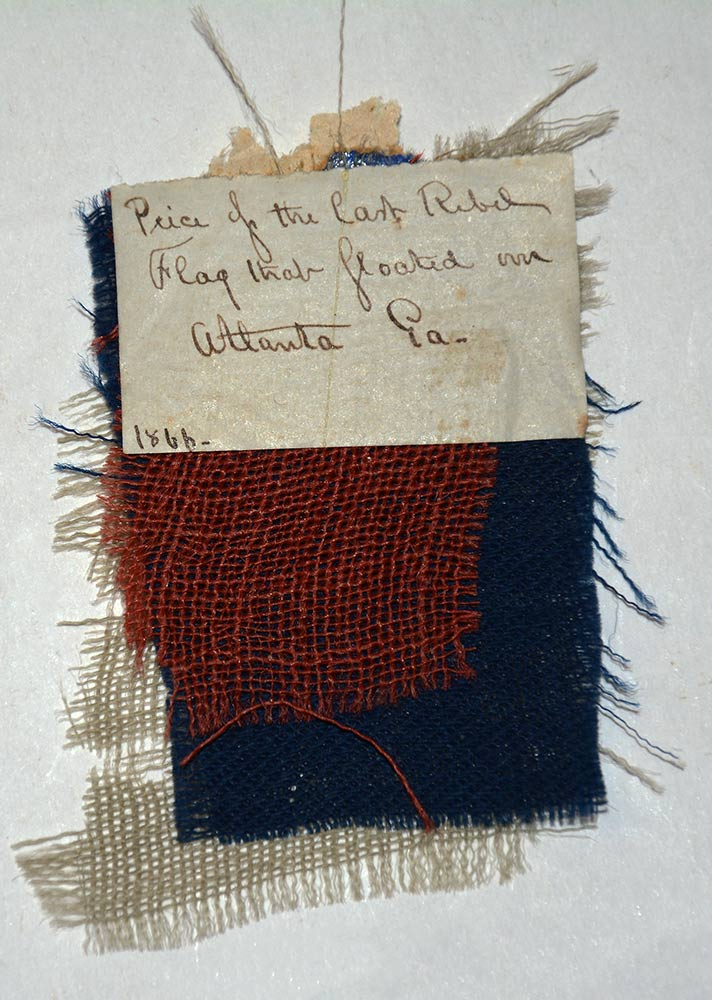 Peice of the last Rebel
Flag that floated over
Atlanta Ga-
1864-